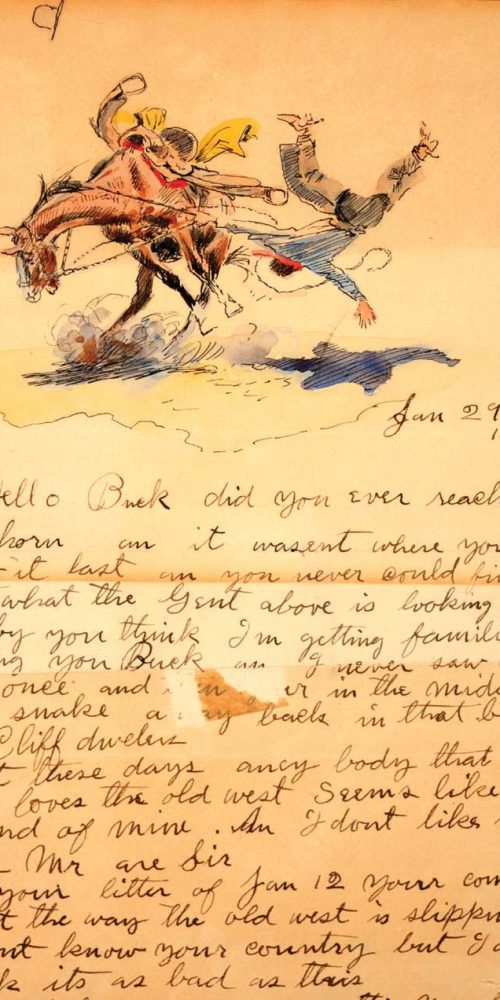 Jan 29
ello Buck did you ever reach
horn an it wasent where you
it last an you never could fi
what the Gent above is looking
by you think I'm getting famili
ng you Buck an I never saw
once and in the mid
snake a back in that b
Cliff dwelers
t these days aney body that
loves the old west Seems like
nd of mine . An I dont like
Mr are Sir
your litter of Jan 12 your com
t the way the old west is slippin
nt know your country but I d
k its as bad as this